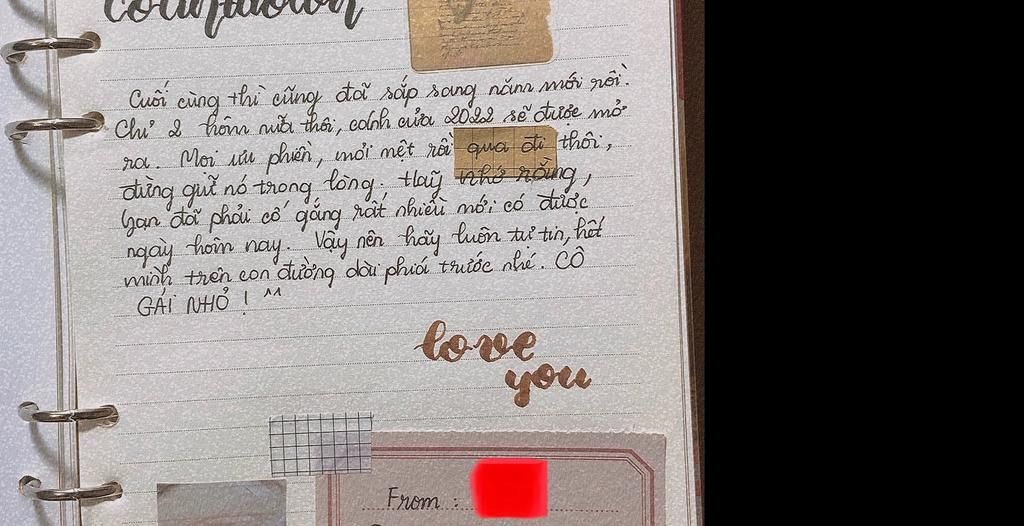 countdown
Cuối cùng thì cũng đã sắp sang năm mới rồi.
Chỉ 2 hôm nữa thôi, cánh cửa 2022 sẽ được mở
ra. Mọi ưu phiền, mỏi mệt rồi qua đi thôi,
đừng giữ nó trong lòng. Hãy nhớ rằng,
bạn đã phải cố gắng rất nhiều mới có được
ngày hôm nay. Vậy nên hãy luôn tự tin, hết
mình trên con đường dài phía trước nhé. CÔ
GÁI NHỎ! ^^
love
you
From: